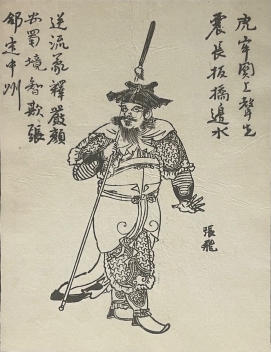 虎牢關上聲先
震長板橋邊水
逆流義釋嚴顏
安蜀境智欺張
郃定中州
張飛